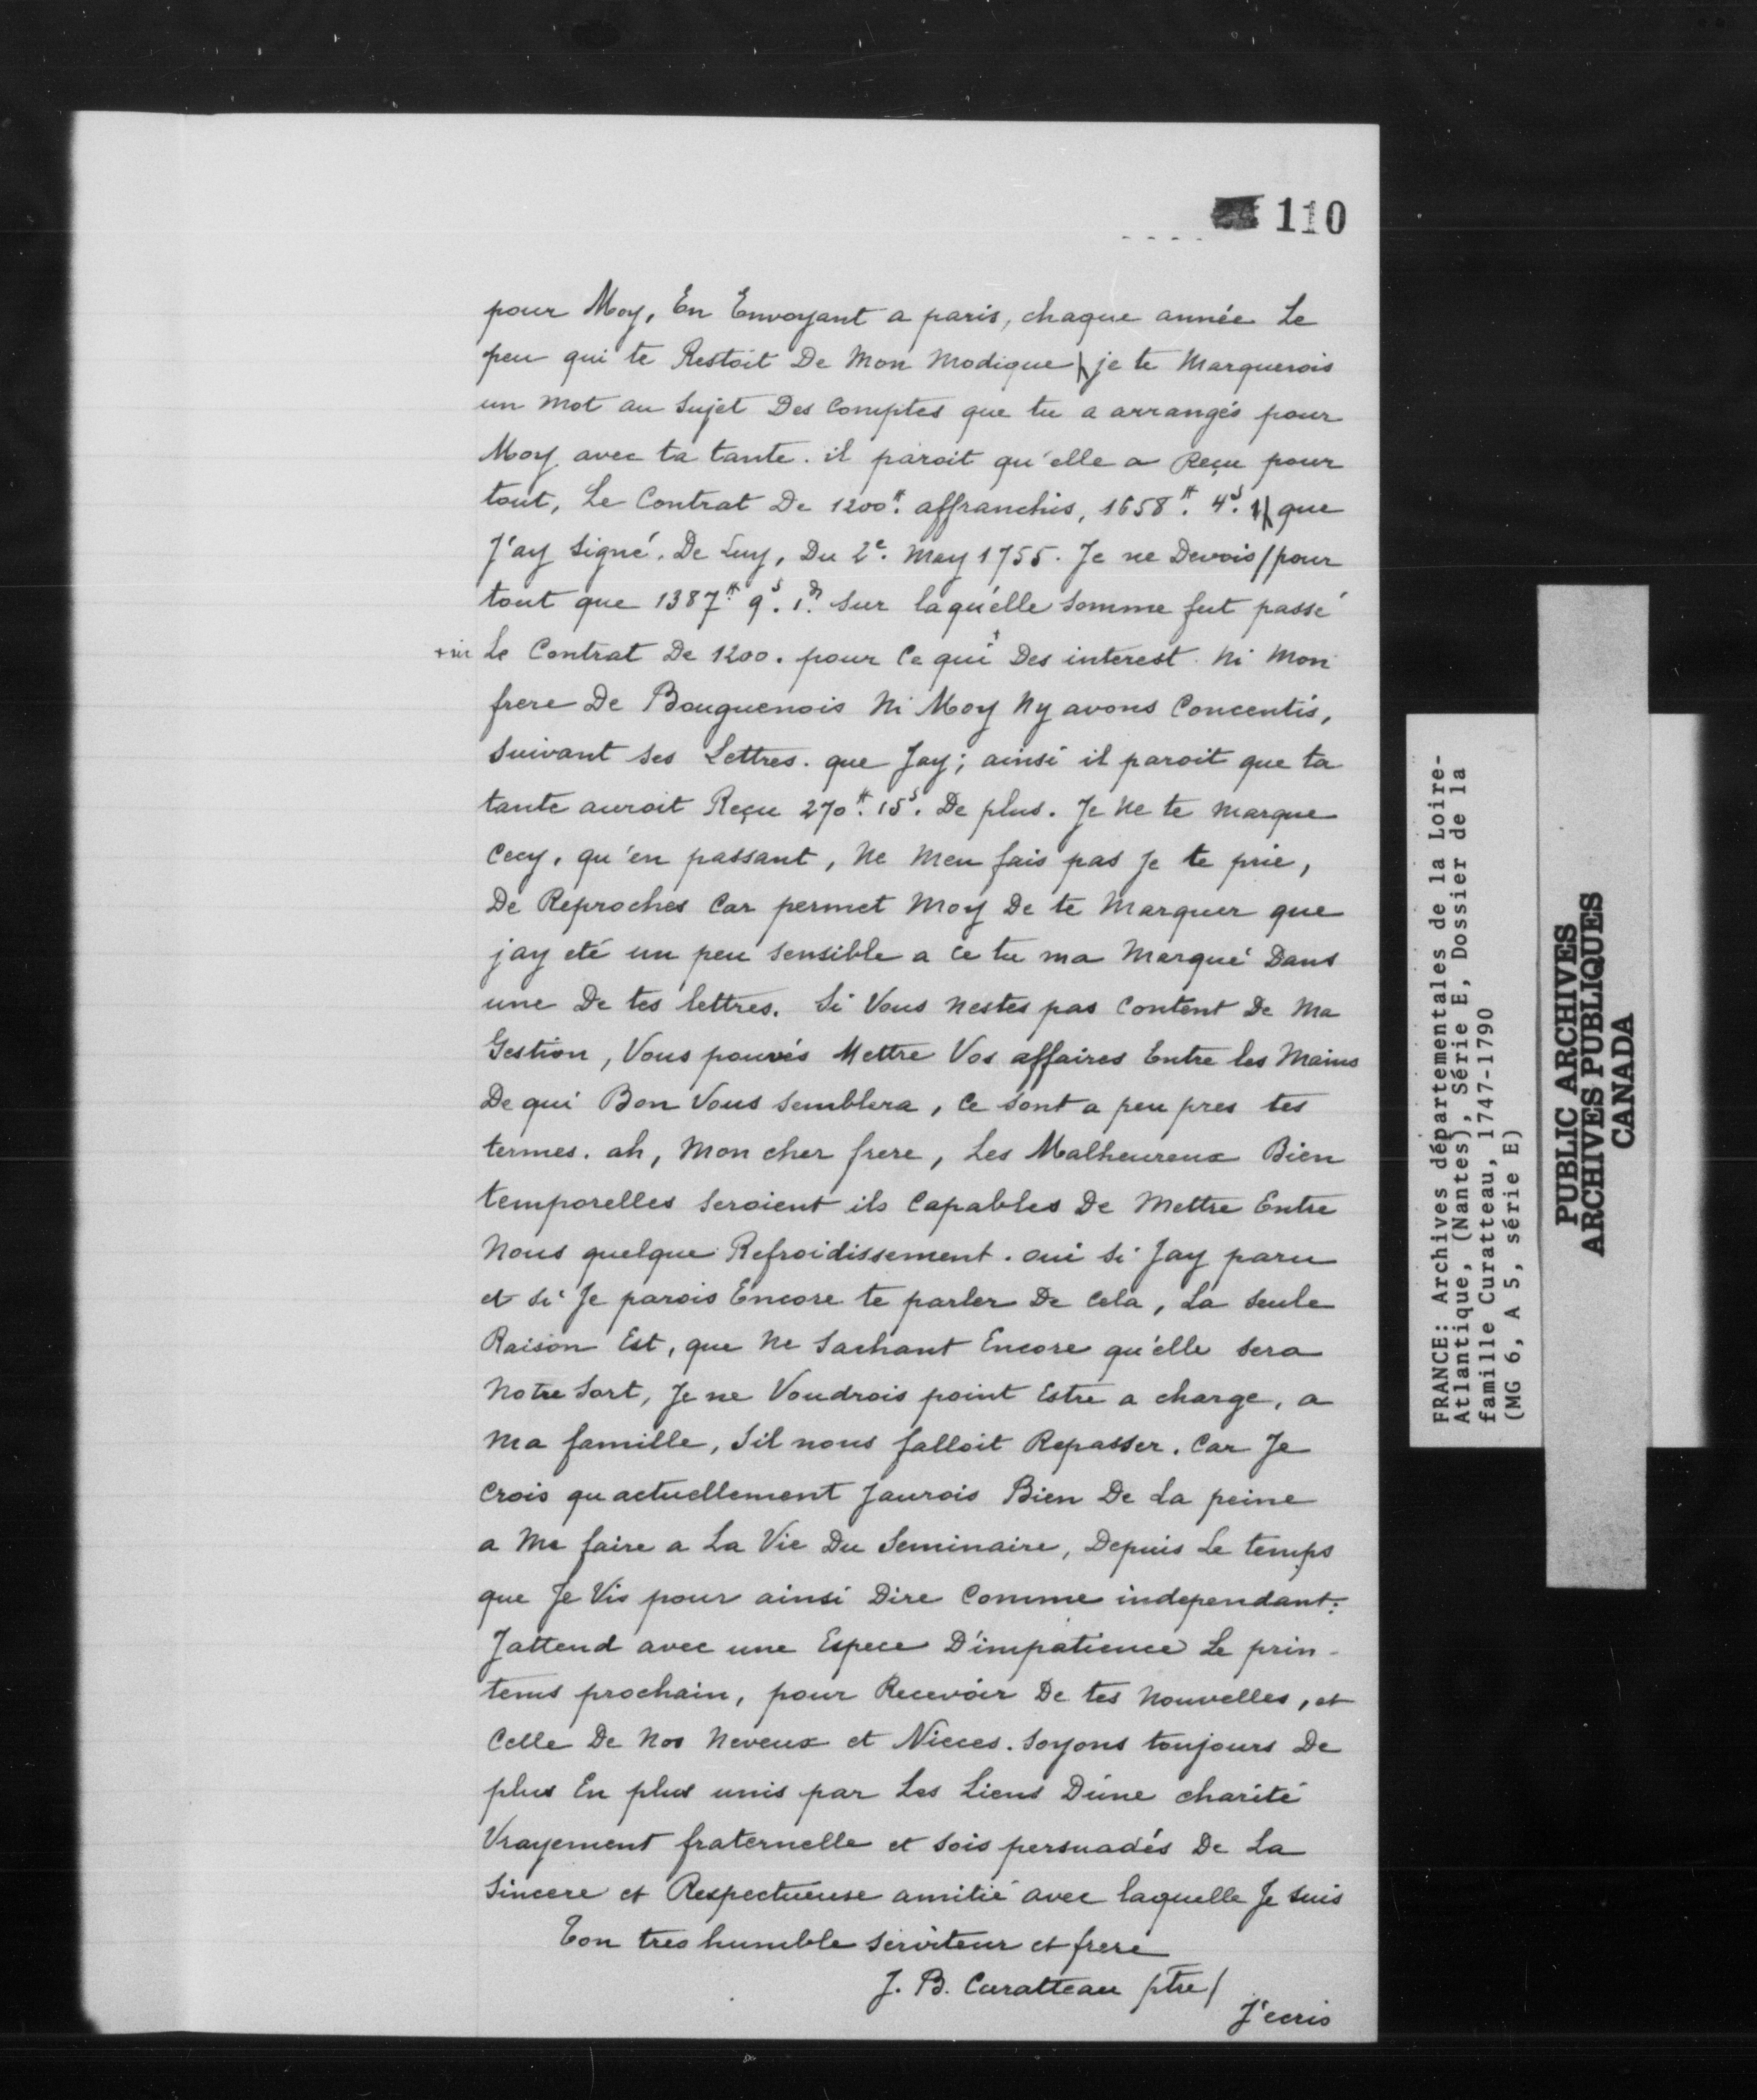 110
pour Moy, En Envoyant a paris, chaque année Le
peu qui te Restoit De Mon Modique je te Marquerois
un Mot au Sujet Des Comptes que tu a arrangés pour
Moy avec ta tante. il paroit qu'elle a Reçu pour
tout, Le Contrat De 1200ᵗᵗ. affranchis, 1658ᵗᵗ. 4ˢ. que
J'ay Signé. De Luy, Du 2ᵉ. May 1755. Je ne Devois / pour
tout que 1387ᵗᵗ 9ˢ. 1ᵈ. Sur laqu'elle Somme fut passé
Le Contrat De 1200. pour Ce qui Des interest. Ni Mon
frere De Bouguenois Ni Moy Ny avons Concentis,
Suivant Ses Lettres. que Jay; ainsi il paroit que ta
tante auroit Reçu 270ᵗᵗ. 15ˢ. De plus. Je Ne te Marque
Cecy, qu'en passant, Ne Men fais pas Je te prie,
De Reproches Car permet Moy De te Marquer que
jay eté un peu Sensible a Ce tu ma Marqué Dans
une De tes lettres. Si Vous Nestes pas Content De Ma
Gestion, Vous pouvés Mettre Vos affaires Entre les Mains
De qui Bon Vous Semblera, Ce Sont a peu pres tes
termes. ah, Mon cher frere, Les Malheureux Bien
temporelles Seroient ils Capables De Mettre Entre
Nous quelque Refroidissement. oui Si Jay paru
et Si Je parois Encore te parler De Cela, La Seule
Raison Est, que Ne Sachant Encore qu'elle Sera
Notre Sort, Je ne Voudrois point Estre a charge, a
Ma famille, Sil nous falloit Repasser. Car Je
Crois qu actuellement Jaurois Bien De La peine
a Me faire a La Vie Du Seminaire, Depuis Le temps
que Je Vis pour ainsi Dire Comme independant.
Jattend avec une Espece D'impatience Le prin-
tems prochain, pour Recevoir De tes Nouvelles, et
Celle De Nos Neveux et Nieces. Soyons toujours De
plus En plus unis par Les Liens D'une charité
Vrayement fraternelle et Sois persuadés De La
Sincere et Respectueuse amitié avec laquelle Je Suis
Ton tres humble Serviteur et frere
J. B. Curatteau ptre /
J'ecris
FRANCE: Archives départementales de la Loire-
Atlantique, (Nantes), Série E, Dossier de la
famille Curatteau, 1747-1790
(MG 6, A 5, série E)
PUBLIC ARCHIVES
ARCHIVES PUBLIQUES
CANADA